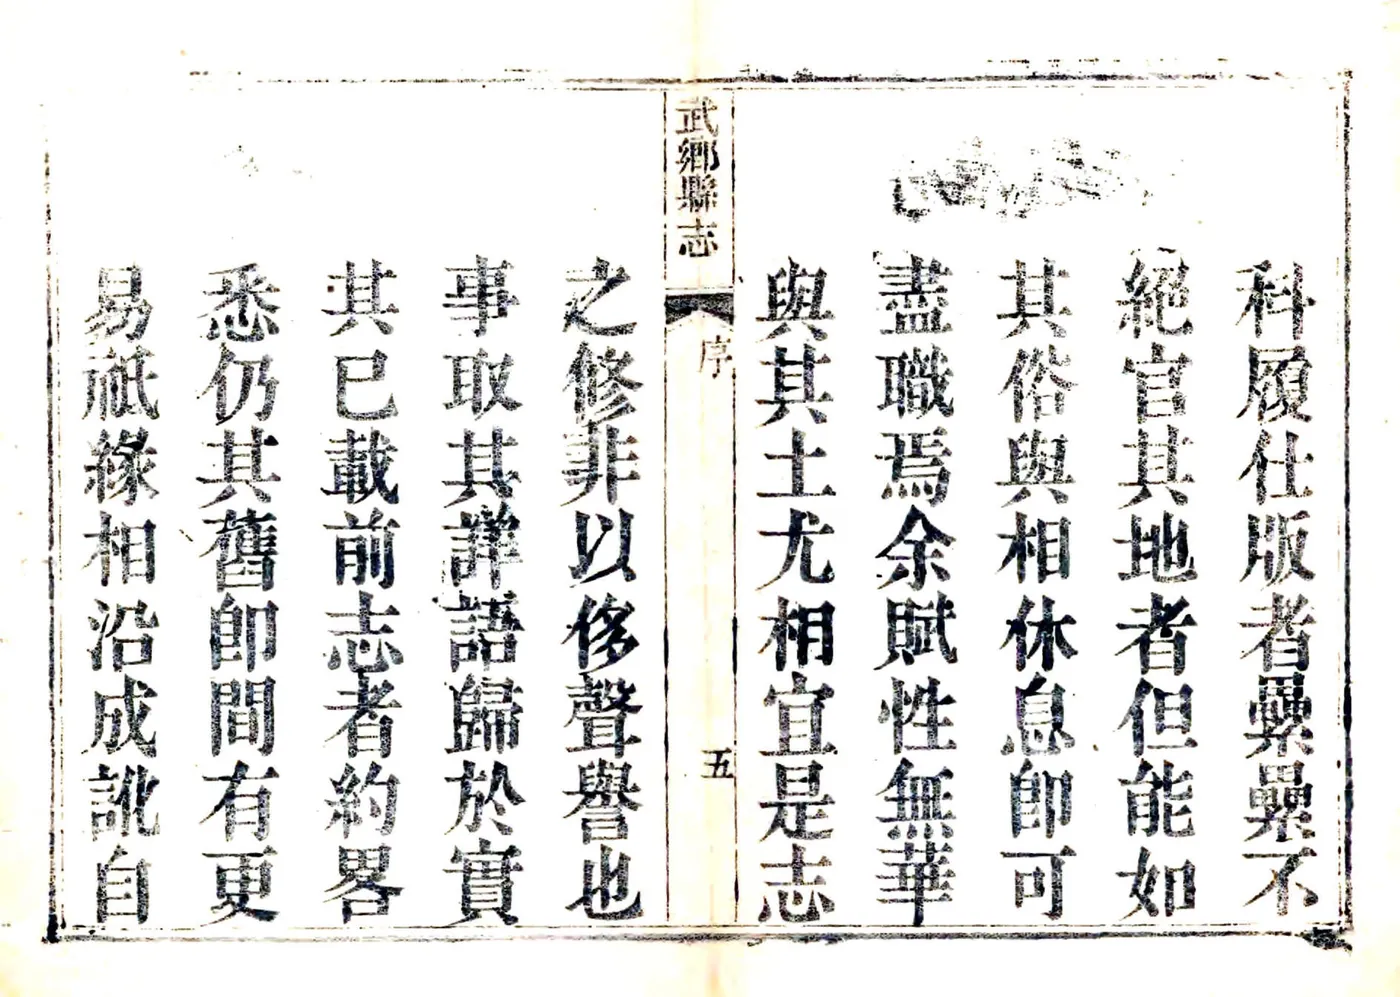 科履仕版者纍纍不
絕官其地者但能如
其俗與相休息卽可
盡職焉余賦性無華
與其土尤相宜是志
武鄉縣志
序
五
之修非以侈聲譽也
事取其詳語歸於實
其已載前志者約畧
悉仍其舊卽間有更
易祇緣相沿成訛自